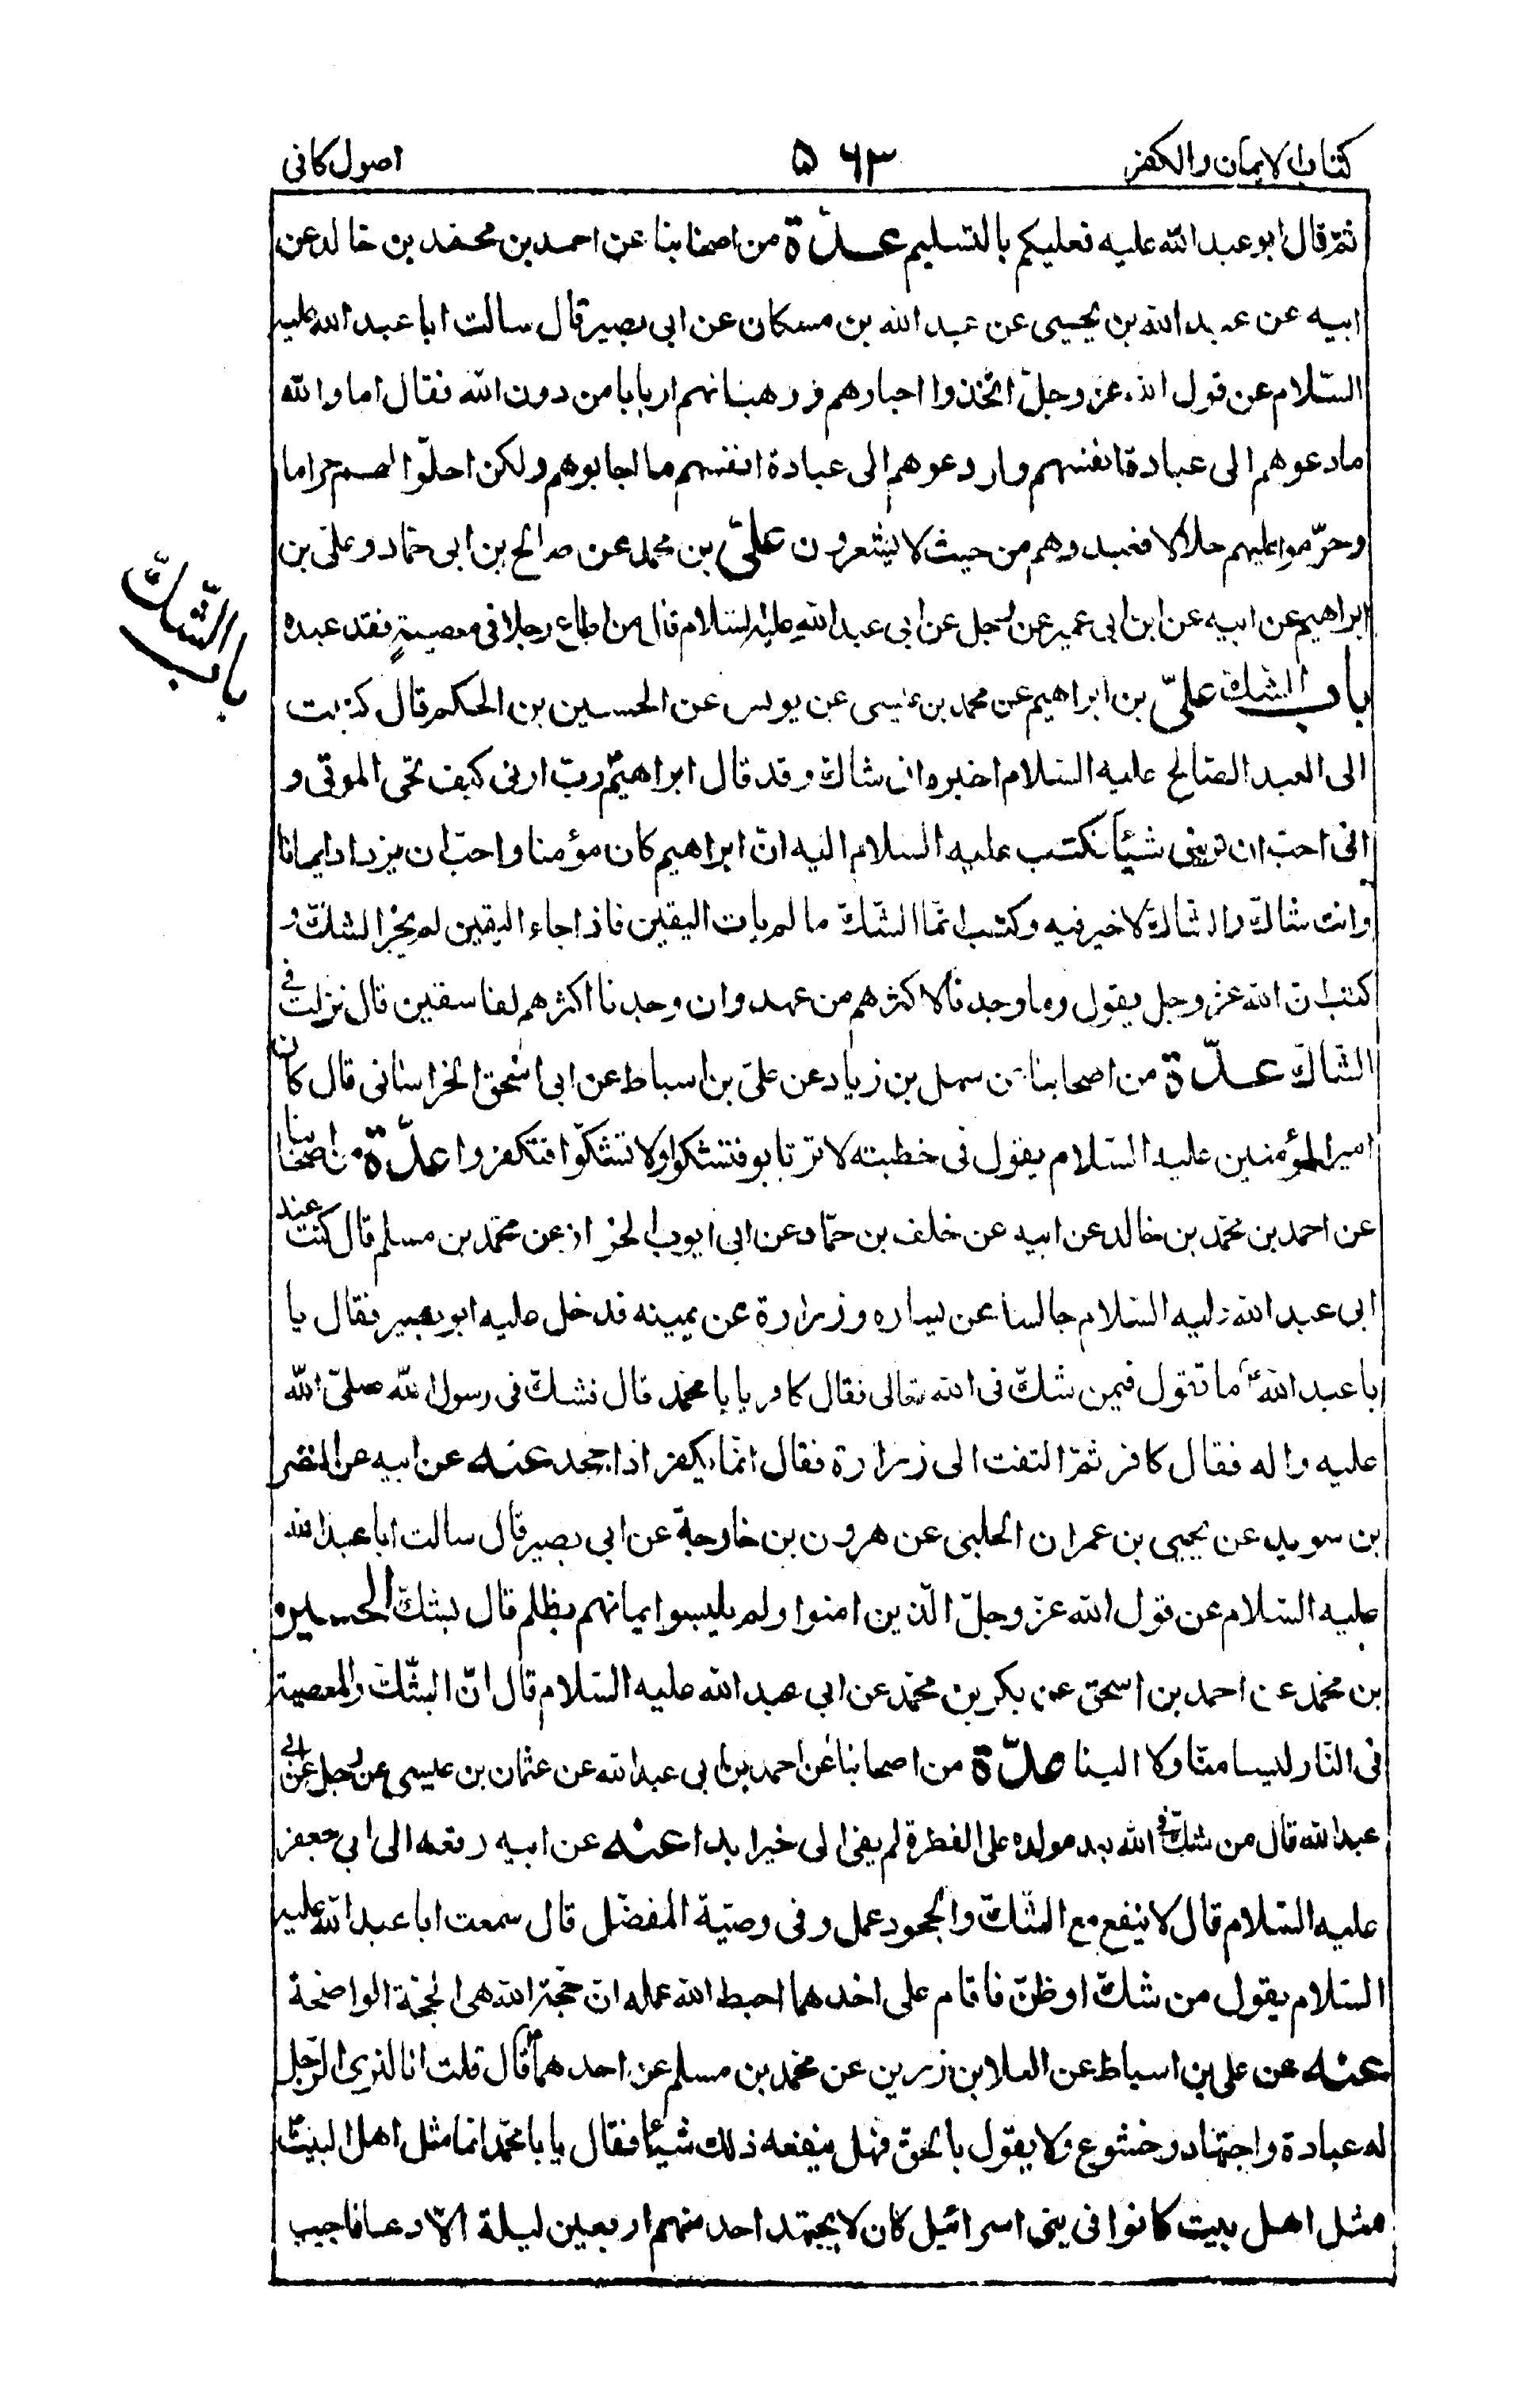 كتاب الايمان والكفر ٥٦٣ اصول كافى
ثمّ قال ابو عبد الله عليه فعليكم بالتسليم عدّة من اصحابنا عن احمد بن محمد بن خالد عن
ابيه عن عبد الله بن يحيى عن عبد الله بن مسكان عن ابى بصير قال سالت ابا عبد الله عليه
السّلام عن قول الله عز وجلّ اتّخذوا احبارهم و رهبانهم اربابا من دون الله فقال اما والله
ما دعوهم الى عبادة انفسهم ولو دعوهم الى عبادة انفسهم ما اجابوهم ولكن احلّوا لهم حراما
وحرّموا عليهم حلالا فعبدوهم من حيث لا يشعرون علىّ بن محمد عن صالح بن ابى حمّاد وعلى بن
ابراهيم عن ابيه عن ابن ابى عمير عن رجل عن ابى عبد الله عليه السّلام قال من اطاع رجلا فى معصيةٍ فقد عبده
باب الشكّ علىّ بن ابراهيم عن محمد بن عيسى عن يونس عن الحسين بن الحكم قال كتبت
باب الشّكّ
الى العبد الصّالح عليه السّلام اخبره انى شاكّ وقد قال ابراهيمّ ربّ ارنى كيف تحى الموتى و
انى احبّ ان ترينى شيئا فكتب عليه السّلام اليه انّ ابراهيم كان مؤمنا واحبّ ان يزداد ايمانا
وانت شاكّ والشّاكّ لا خير فيه وكتب انّما الشّكّ ما لم يات اليقين فاذا جاء اليقين لم يجز الشكّ و
كتب انّ الله عز وجل يقول وما وجدنا لاكثرهم من عهد وان وجدنا اكثرهم لفاسقين قال نزلت فى
الشّاكّ عدّة من اصحابنا عن سهل بن زياد عن علىّ بن اسباط عن ابى اسحق الخراسانى قال كان
امير المؤمنين عليه السّلام يقول فى خطبته لا ترتابو فتشكوا ولا تشكّوا فتكفروا عدّة من اصحابنا
عن احمد بن محمّد بن خالد عن ابيه عن خلف بن حمّاد عن ابى ايوب الخزاز عن محمّد بن مسلم قال كنت عند
ابى عبد الله عليه السّلام جالسا عن يساره وزرارة عن يمينه فدخل عليه ابو بصير فقال يا
با عبد الله ما تقول فيمن شكّ فى الله تعالى فقال كافر يا با محمّد قال فشكّ فى رسول الله صلىّ الله
عليه واله فقال كافر ثمّ التفت الى زرارة فقال انّما يكفر اذا جحد عنه عن ابيه عن النضر
بن سويد عن يحيى بن عمران الحلبى عن هرون بن خارجة عن ابى بصير قال سالت ابا عبد الله
عليه السّلام عن قول الله عزّ وجلّ الّذين امنوا ولم يلبسوا ايمانهم بظلم قال بشكّ الحسين
بن محمد عن احمد بن اسحق عن بكر بن محمّد عن ابى عبد الله عليه السّلام قال انّ الشّكّ والمعصية
فى النّار ليسا منّا ولا الينا عدّة من اصحابنا عن احمد بن ابى عبد الله عن عثمان بن عيسى عن رجل عن ابى
عبد الله قال من شكّ فى الله بعد مولده على الفطرة لم يفئ الى خير ابدا عنه عن ابيه رفعه الى ابى جعفر
عليه السّلام قال لا ينفع مع الشّكّ والجحود عمل وفى وصيّة المفضّل قال سمعت ابا عبد الله عليه
السّلام يقول من شكّ او ظنّ فاقام على احدهما احبط الله عمله انّ حجّة الله هى الحجّة الواضحة
عنه عن على بن اسباط عن العلا بن زرين عن محمّد بن مسلم عن احدهما قال قلت انا لنرى الرّجل
له عبادة واجتهاد وخشوع ولا يقول بالحقّ فهل ينفعه ذلك شيئا فقال يا با محمّد انما مثل اهل البيت
مثل اهل بيت كانوا فى بنى اسرائيل كان لا يجتهد احد منهم اربعين ليلة الّا دعا فاجيب